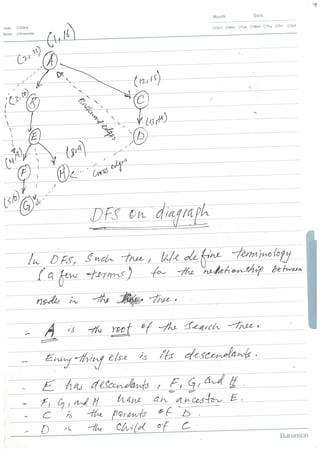 Month. Date.
(1,16)
(2,11)
A
(12,15)
C
B
Backward edges
(13,14)
E
D
(8,9)
F
H
Cross edges
G
DFS on diagraph
In DFS, Such tree, We define terminology
(a few terms) for the relationship between
nodes in the tree.
- A is the root of the Search tree.
- Every-thing else is its descendants.
- E has descendants, F, G, and H
- F, G, and H have an ancestor E.
- C is the parents of D.
- D is the child of C.
Barunson